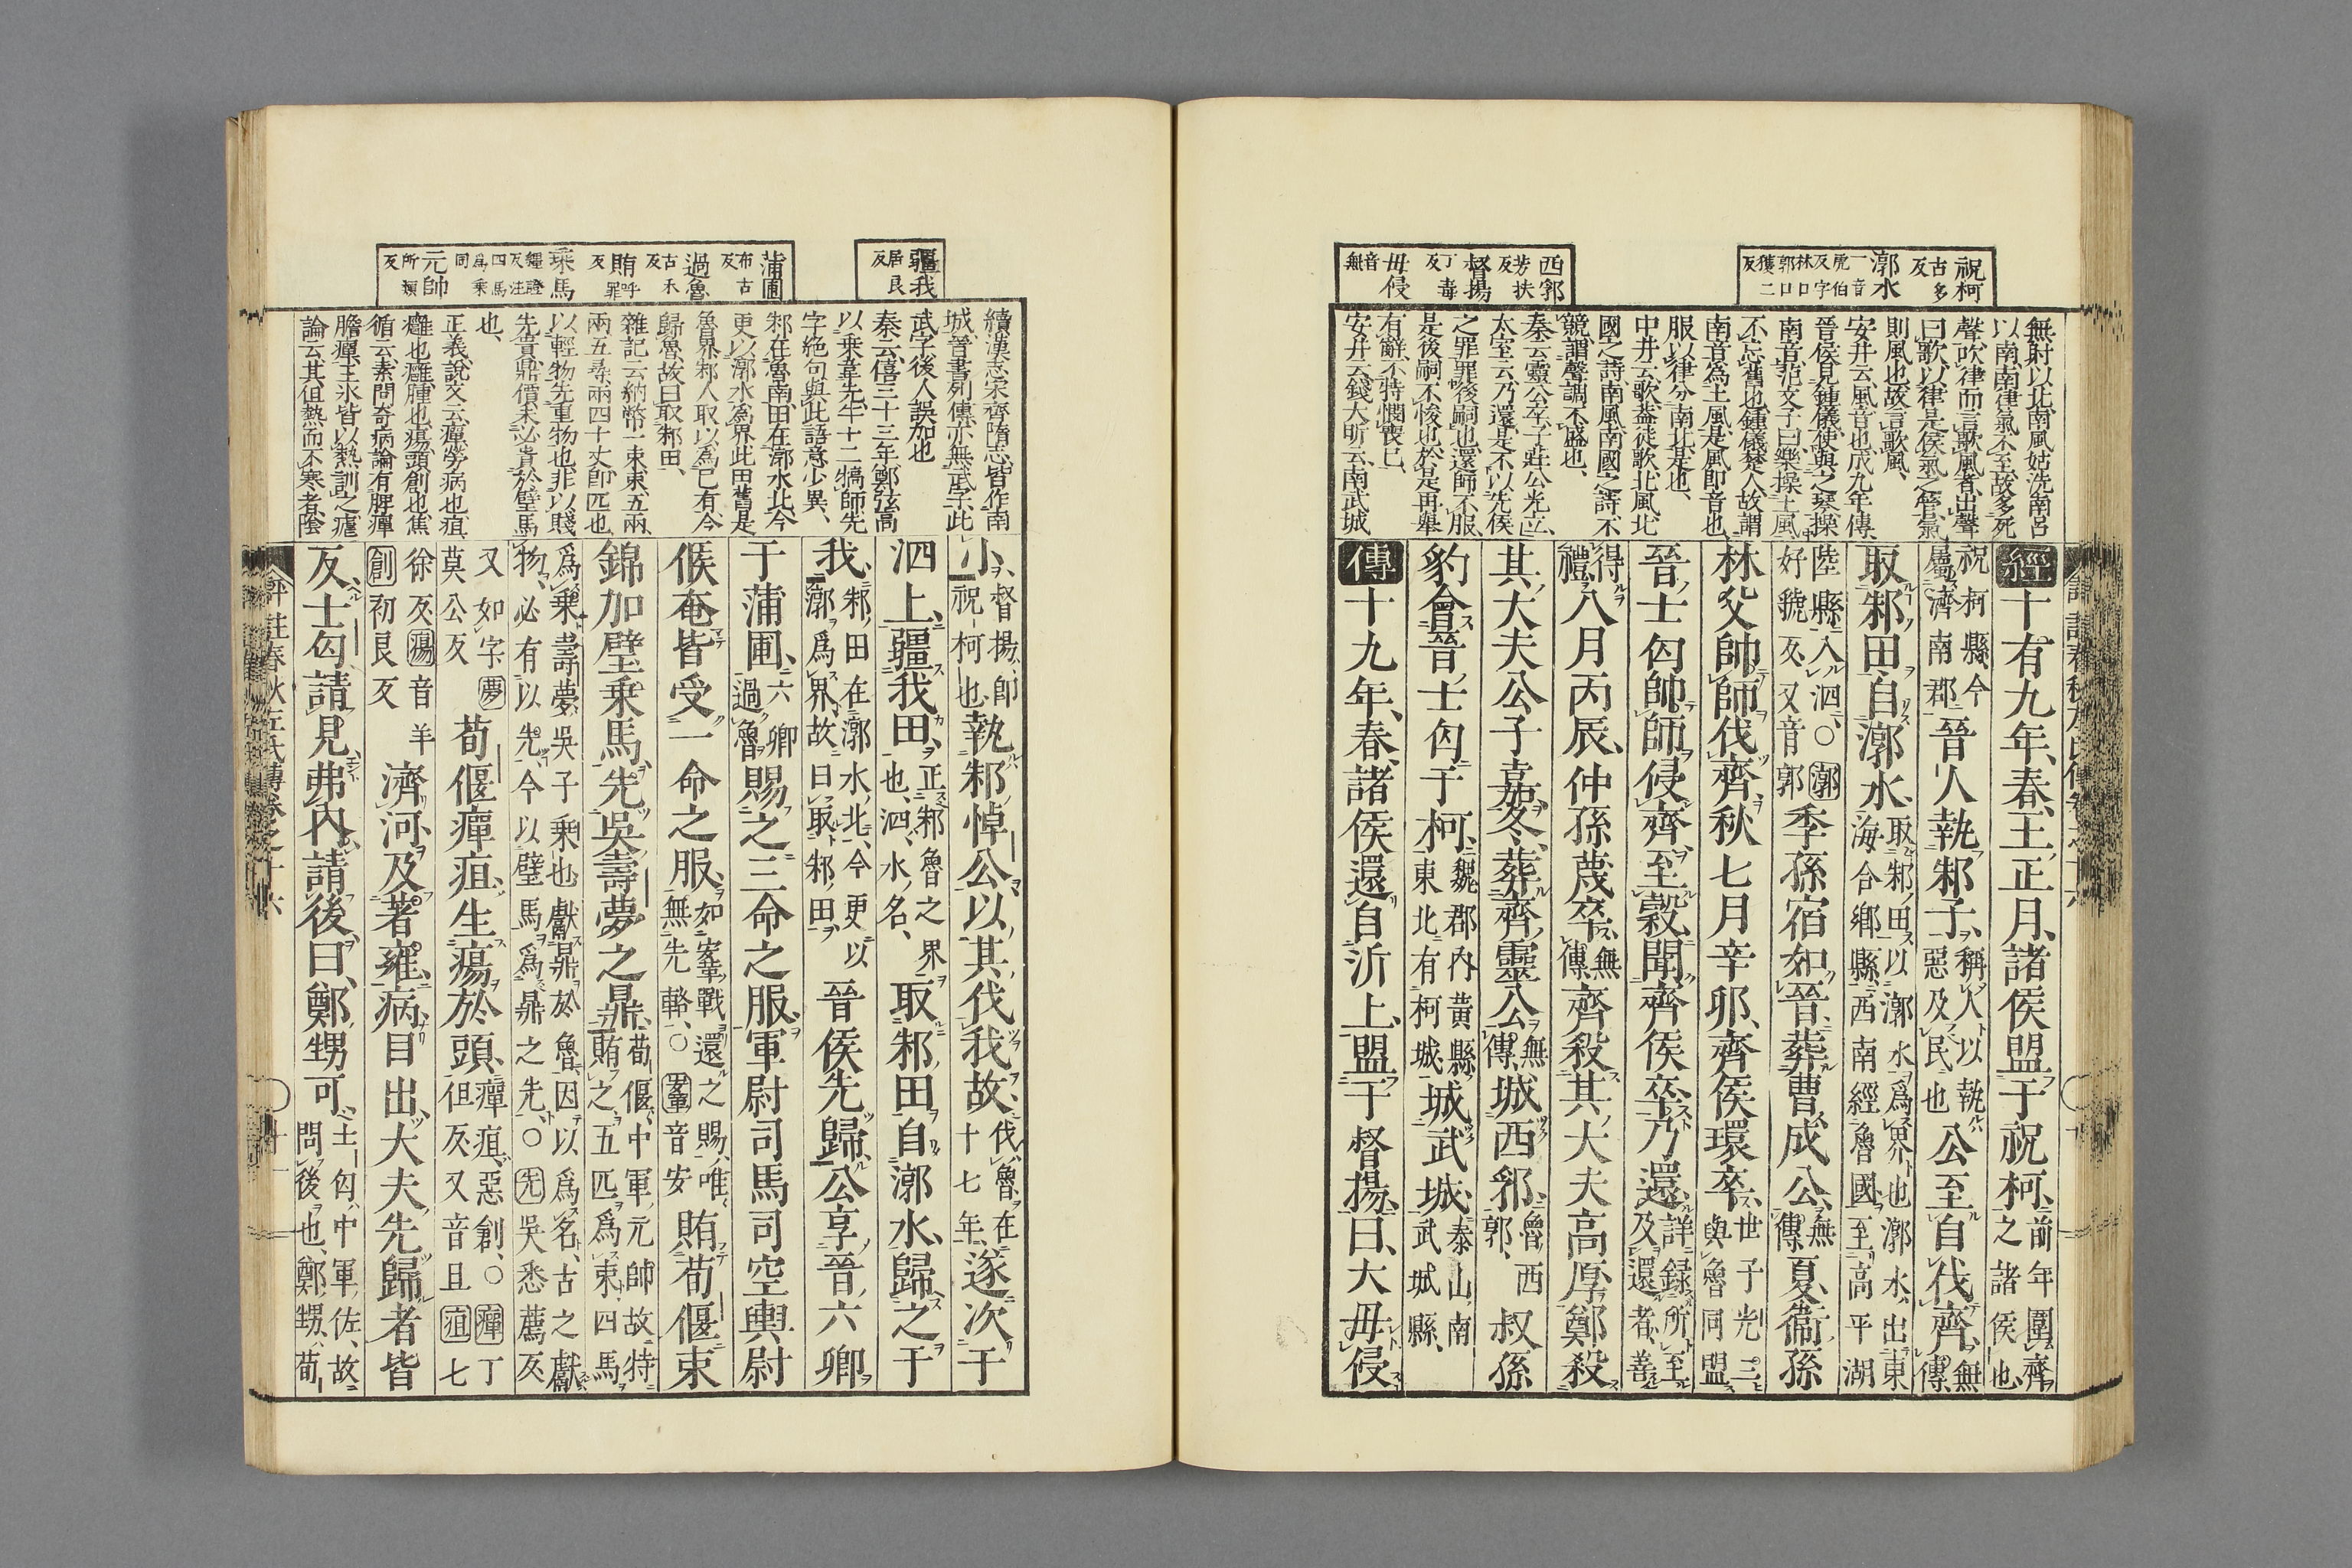 祝柯 古多反 漷水 一音虎伯反字林口郭口獲二反
西郛 芳扶反 督揚 丁毒反 毋侵 音無
無射以北南風姑洗南呂
以南南律氣不至故多死
聲吹律而言歌風者出聲
曰歌以律是候氣之管氣
則風也故言歌風、
安井云風音也成九年傳
晉侯見鍾儀使與之琴操
南音范文子曰樂操土風
不忘舊也鍾儀楚人故謂
南音為土風是風即音也
服以律分南北是也、
中井云歌蓋徒歌北風北
國之詩南風南國之詩不
競謂聲調不盛也、
秦云靈公卒子莊公光立
太室云乃還是不以先侯
之罪罪後嗣也還師不服
是後嗣不悛也於是再舉
有辭不特憫喪已、
安井云錢大昕云南武城
經十有九年、春、王正月、諸侯盟于祝柯、前年圍齊之諸侯也、
祝柯縣、今屬濟南郡晉人執邾子、稱人以執惡及民也公至自伐齊、無傳、
取邾田、自漷水、取邾田以漷水為界也漷水出東海合鄉縣西南經魯國至高平湖
陸縣入泗、○漷好虢反又音郭季孫宿如晉、葬曹成公、無傳夏、衞孫
林父帥師伐齊、秋七月辛卯、齊侯環卒、世子光三與魯同盟
晉士匄帥師侵齊、至穀、聞齊侯卒、乃還、詳録所至及還者善
得禮八月丙辰、仲孫蔑卒、無傳、齊殺其大夫高厚、鄭殺
其大夫公子嘉、冬、葬齊靈公、無傳、城西郛、魯西郭、叔孫
豹會晉士匄于柯、魏郡內黃縣東北有柯城、城武城、泰山南武城縣、
傳十九年、春、諸侯還自沂上、盟于督揚、曰、大毋侵
疆我 居良反
蒲圃 布古反 過魯 古禾反 賄 呼罪反 乘馬 繩證反注四馬為乘同 元帥 所類反
續漢志宋齊隋志皆作南
城晉書列傳亦無武字此
武字後人誤加也
秦云僖三十三年鄭弦高
以乗韋先牛十二犒師先
字絕句與此語意少異、
邾在魯南田在漷水北今
更以漷水為界此田舊是
魯界邾人取以為己有今
歸魯故曰取邾田、
雜記云納幣一束束五兩
兩五尋兩四十丈即匹也
以輕物先重物也非以賤
先貴鼎價未必貴於璧馬
也、
正義說文云癉勞病也疽
癰也癰腫也瘍頭創也焦
循云素問奇病論有脾癉
膽癉王氷皆以熱訓之瘧
論云其但熱而不寒者陰
小、督揚、即祝柯也執邾悼公、以其伐我故、伐魯在十七年、遂次于
泗上、疆我田、正邾魯之界也、泗、水名、取邾田、自漷水、歸之于
我、邾田在漷水北、今更以漷為界、故曰取邾田、晉侯先歸、公享晉六卿
于蒲圃、六卿過魯賜之三命之服、軍尉司馬司空輿尉
候奄皆受一命之服、如鞌戰還之賜、唯無先輅、○鞌音安賄荀偃束
錦加璧乗馬、先吳壽夢之鼎、荀偃、中軍元帥故特賄之、五匹為束、四馬
為乗、壽夢、吳子乗也、獻鼎於魯、因以為名、古之獻物、必有以先今以璧馬為鼎之先、○先吳悉薦反
又如字夢莫公反荀偃癉疽、生瘍於頭、癉疽、惡創、○癉丁但反又音旦疽七
徐反瘍音羊創初良反濟河、及著雍、病、目出、大夫先歸者皆
反、士匄請見、弗內、請後、曰、鄭甥可、士匄、中軍佐、故問後也、鄭甥、荀
評註春秋左氏傳卷之十六
十一